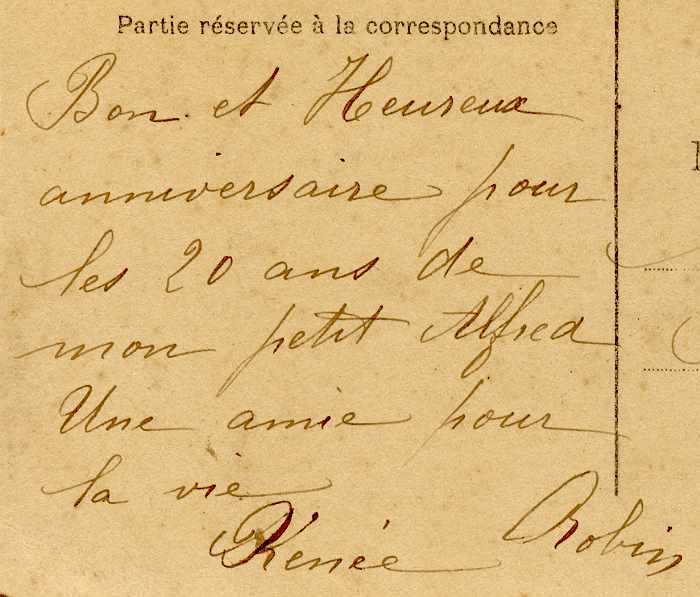 Partie réservée à la correspondance
Bon et Heureux
anniversaire pour
les 20 ans de
mon petit Alfred
Une amie pour
la vie
Renée Robin